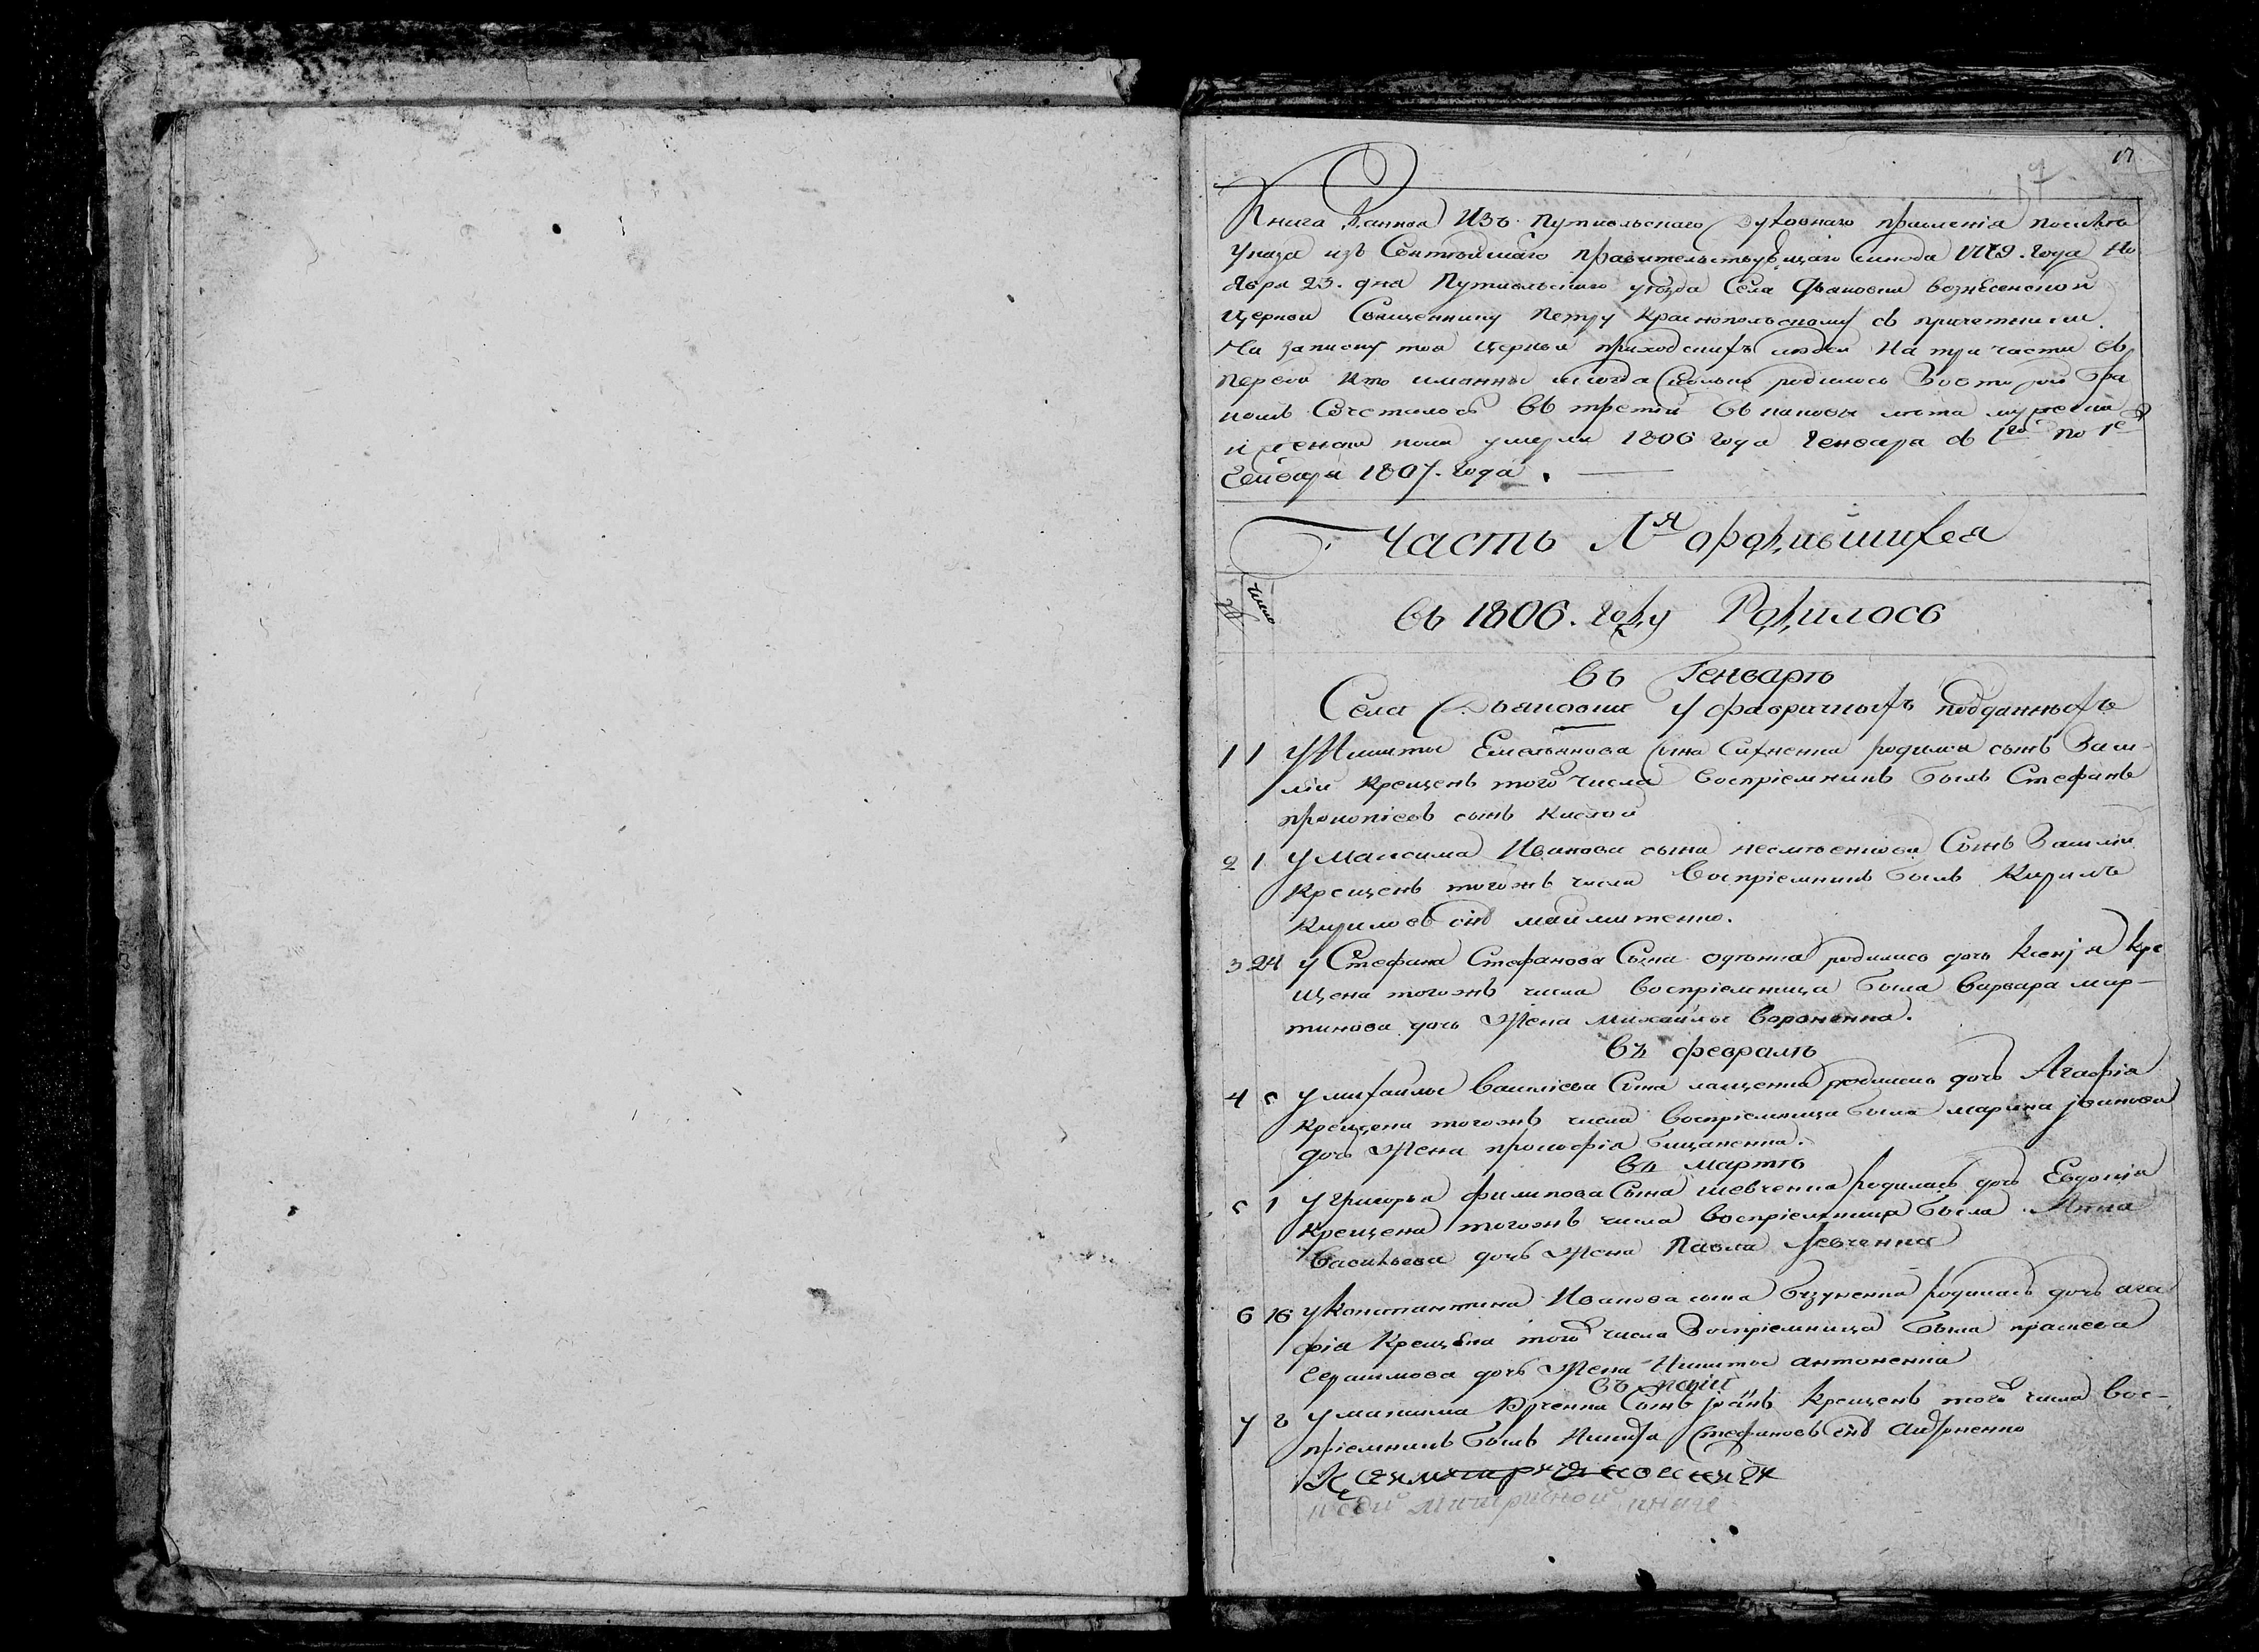 17
17
Книга данная Изъ Путивльскаго духовнаго правления посилѣ
указа изъ Святейшаго правительствующаго синода 1779. года Но
ября 23. дня Путивльскаго уѣзда Села вознесенской
Церкви Священнику Петру Краснопольскому съ причетники
На записку тоя Церкви приходскихъ людей На три части въ
первой кто имянно когда сколько родилось Вовторой бра
комъ Сочеталось въ третей въ каковы лета мужеска
и женска пола умерли 1806 года Генваря съ 1го по 1е
Генваря 1807. года.
Часть 1я ородившихся
число
въ 1806. году Родилось
въ Генварѣ
Села у фабричныхъ подданныхъ
1 1 у Никиты Емельянова сына родился сынъ Васи-
лій крещенъ того числа воспріемникъ былъ Стефанъ
прокопіевъ сынъ
2 1 у Максима Иванова сына Сынъ Василій
крещенъ тогожъ числа воспріемникъ былъ Кирилъ
Кириловъ снъ
3 24 у Стефана Стефанова Сына родилась дочь Ксенія кре
щена тогожъ числа воспріемница была Варвара мар-
тинова дочь жена Михайлы Вороненка.
въ февралѣ
4 5 у михайлы Василіева Сына лащенка родилась дочь Агафія
крещена тогожъ числа воспріемница была марина
дочь жена прокофія
въ мартѣ
5 1 у Григорья филипова Сына шевченка родилась дочь Евдокія
крещена тогожъ числа воспріемница была Анна
Васильева дочь жена Павла Левченка
6 16 у Константина Иванова сына родилась дочь ага
фія крещена того числа воспріемница была
Герасимова дочь жена Никиты антоненка
въ маіи
7 2 у максима Юрченка Сынъ крещенъ того числа вос-
пріемникъ былъ Никита Стефановъ снъ